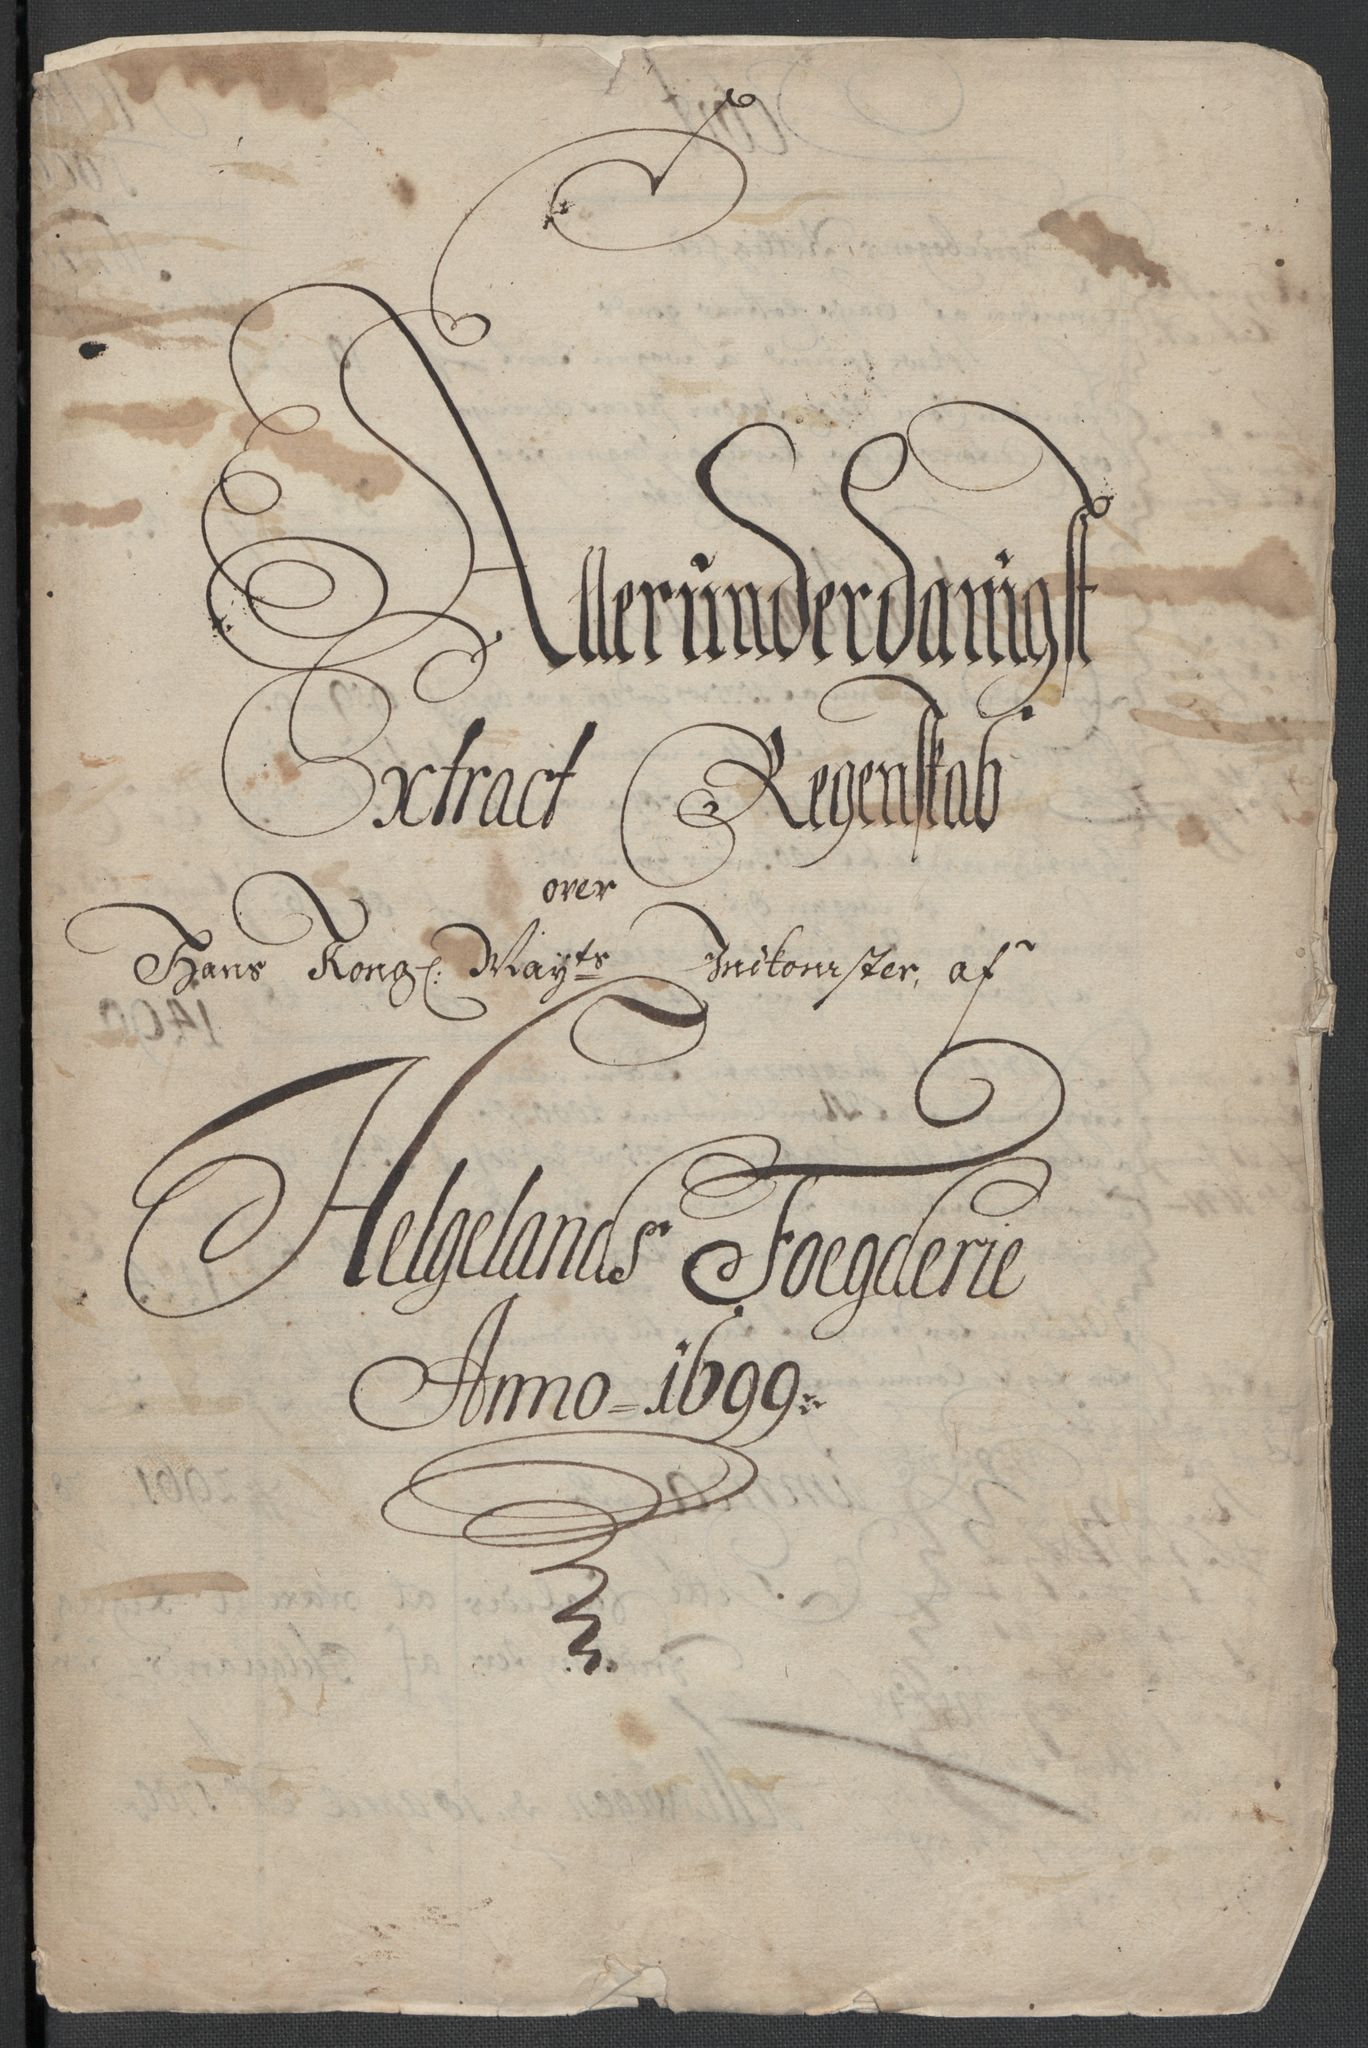 Alleründerdanigst
Extract Regenskab
over
Hans Kong: Mayts Indkomster, af
Helgelands Foegderie
Anno = 1699